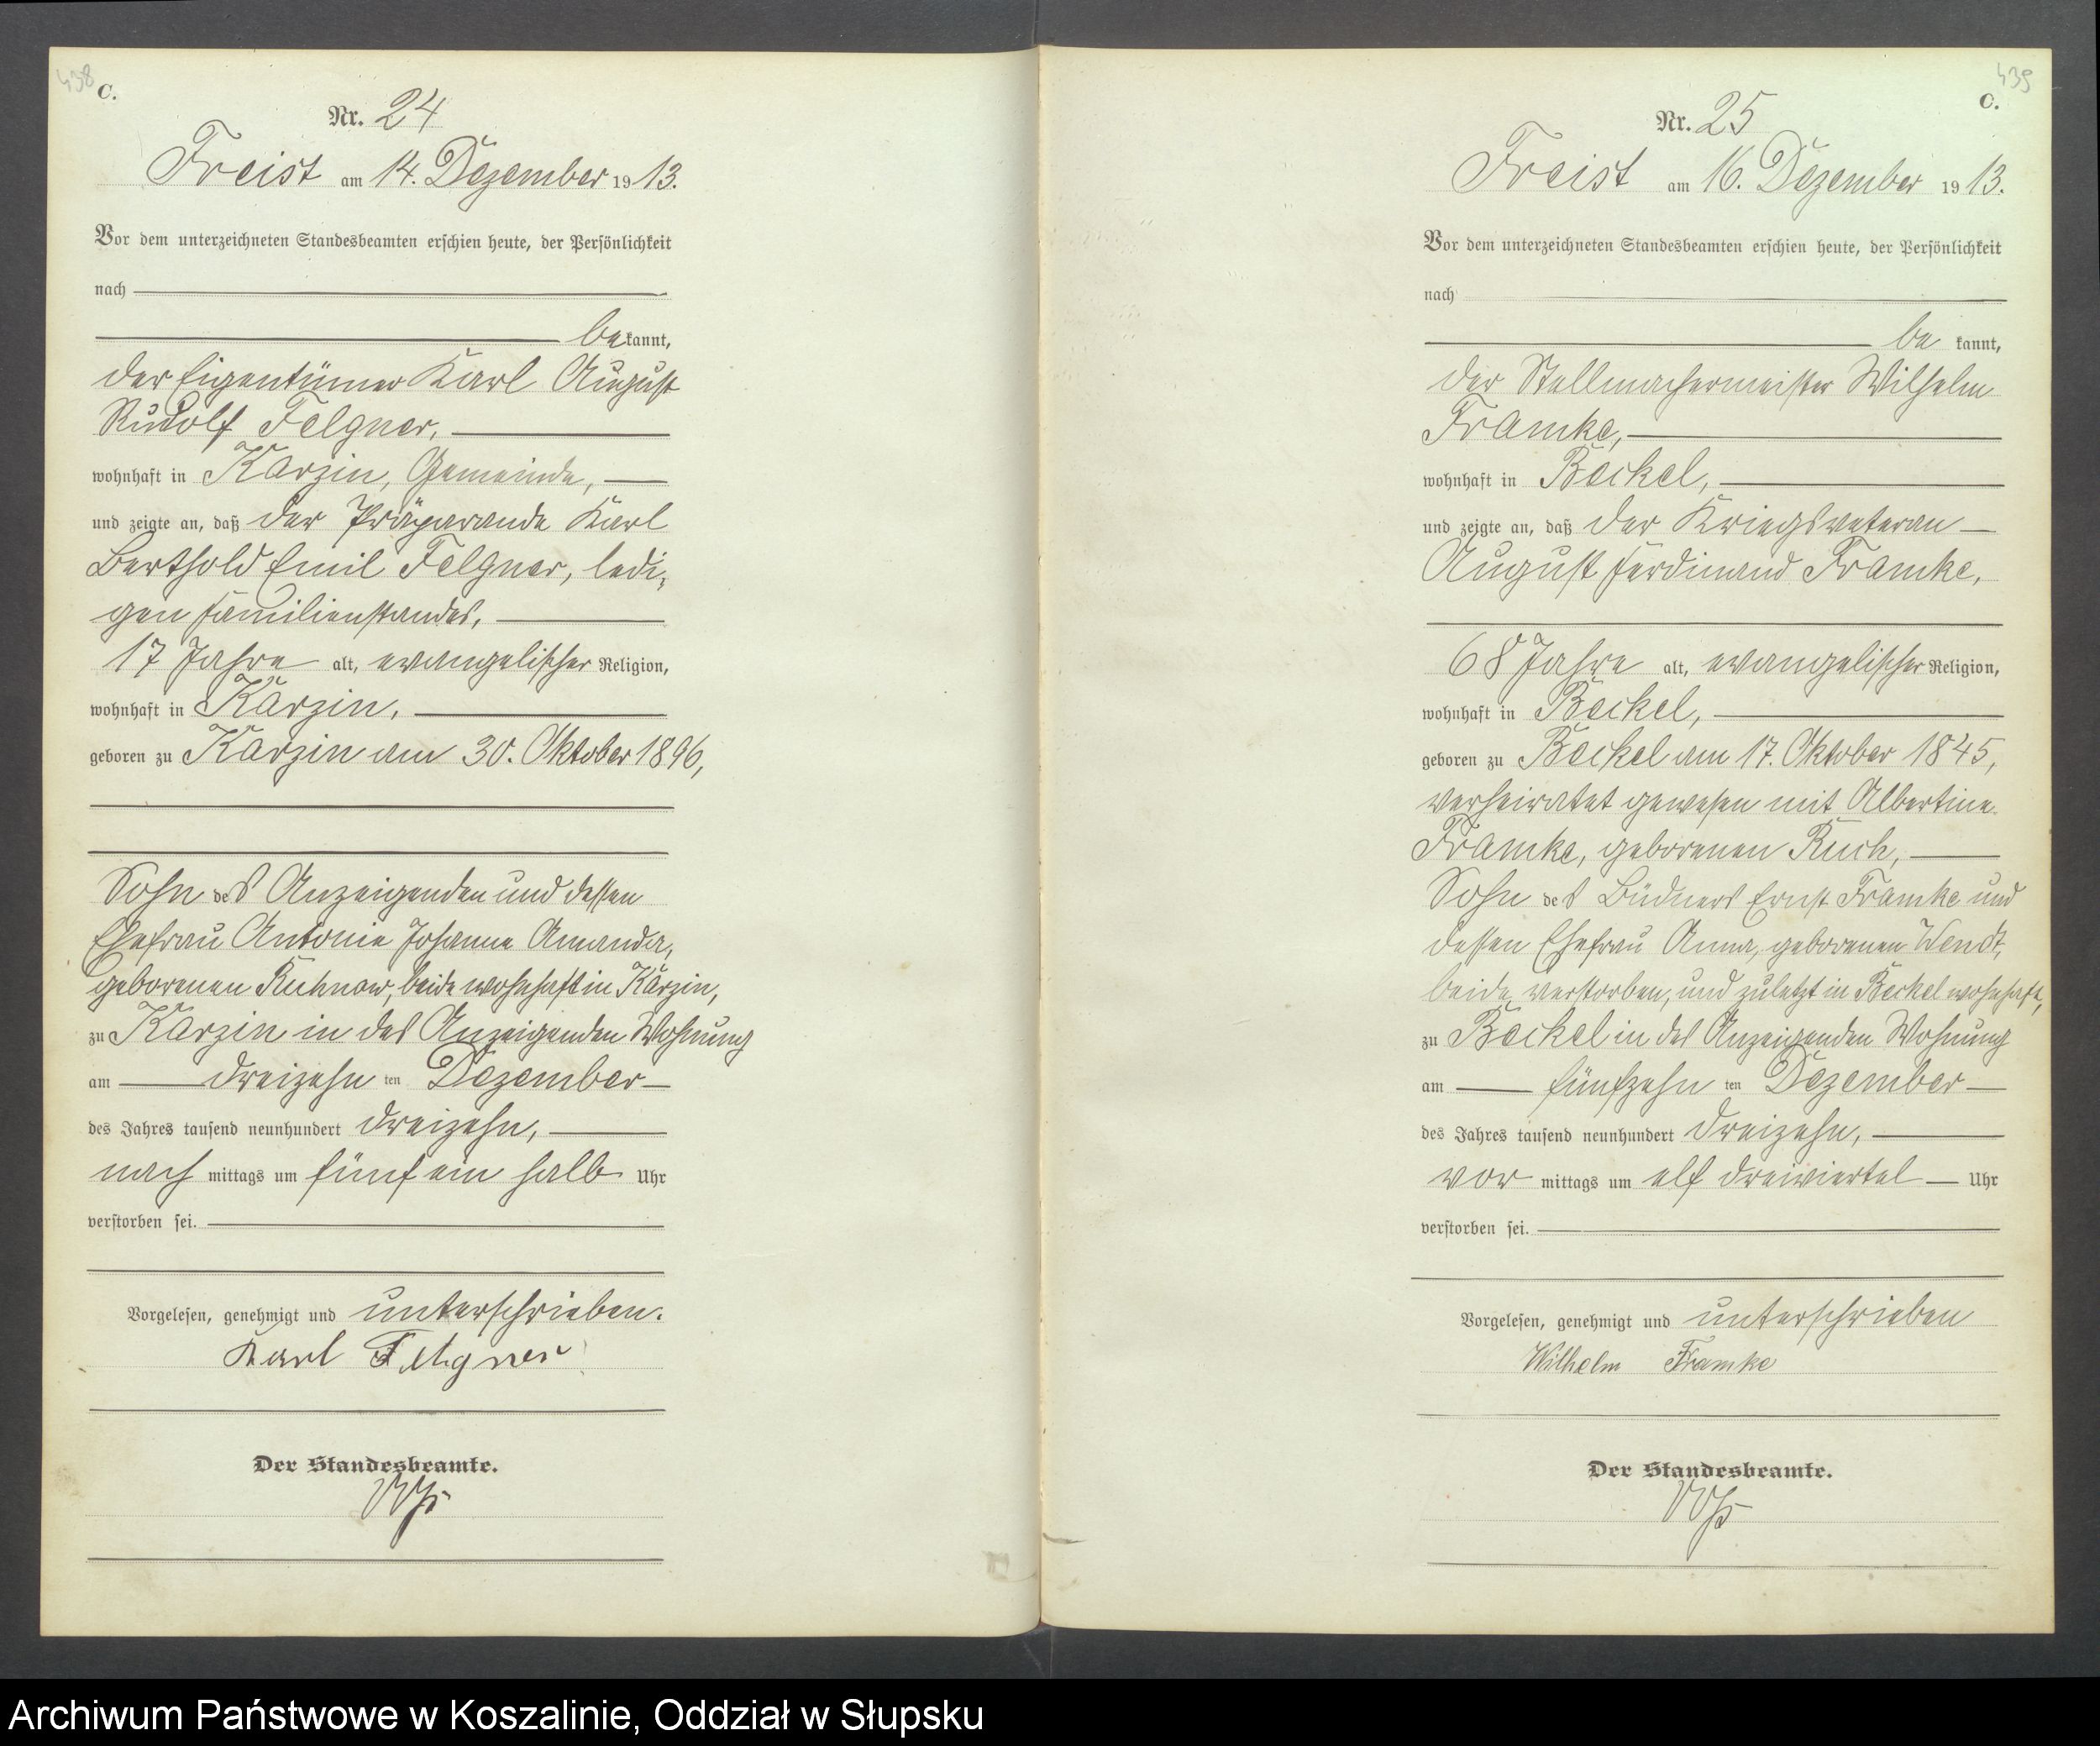 438
C.
Nr. 24
Freist am 14. Dezember 1913.
Vor dem unterzeichneten Standesbeamten erschien heute, der Persönlichkeit
nach
bekannt,
der Eigentümer Karl August
Rudolf Felgner,
wohnhaft in Karzin, Gemeinde,
und zeigte an, daß der Präparande Karl
Berthold Emil Felgner, ledi-
gen Familienstandes,
17 Jahre alt, evangelischer Religion,
wohnhaft in Karzin,
geboren zu Karzin am 30. Oktober 1896,
Sohn des Anzeigenden und dessen
Ehefrau Antonie Johanna Amanda,
geborenen Kuhnow, beide wohnhaft in Karzin,
zu Karzin in des Anzeigenden Wohnung
am dreizehn ten Dezember
des Jahres tausend neunhundert dreizehn,
nach mittags um fünf ein halb Uhr
verstorben sei.
Vorgelesen, genehmigt und unterschrieben.
Karl Felgner
Der Standesbeamte.
439
C.
Nr. 25
Freist am 16. Dezember 1913.
Vor dem unterzeichneten Standesbeamten erschien heute, der Persönlichkeit
nach
be kannt,
der Stellmachermeister Wilhelm
Framke,
wohnhaft in Beckel,
und zeigte an, daß der Kriegsveteran
August Ferdinand Framke,
68 Jahre alt, evangelischer Religion,
wohnhaft in Beckel,
geboren zu Beckel am 17. Oktober 1845,
verheiratet gewesen mit Albertine
Framke, geborenen Kuch,
Sohn des Büdners Ernst Framke und
dessen Ehefrau Anna, geborenen Wendt,
beide verstorben, und zuletzt in Beckel wohnhaft,
zu Beckel in des Anzeigenden Wohnung
am fünfzehn ten Dezember
des Jahres tausend neunhundert dreizehn,
vor mittags um elf dreiviertel Uhr
verstorben sei.
Vorgelesen, genehmigt und unterschrieben
Wilhelm Framke
Der Standesbeamte.
Archiwum Państwowe w Koszalinie, Oddział w Słupsku